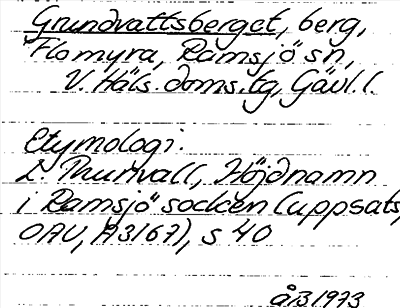 Grundvattsberget, berg,
Flomyra, Ramsjö sn,
V. Häls. doms.tg, Gävl.l.
Etymologi.
L Thunvall, Höjdnamn
i Ramsjö socken (uppsats,
OAU, A3167), s 40
åB 1973